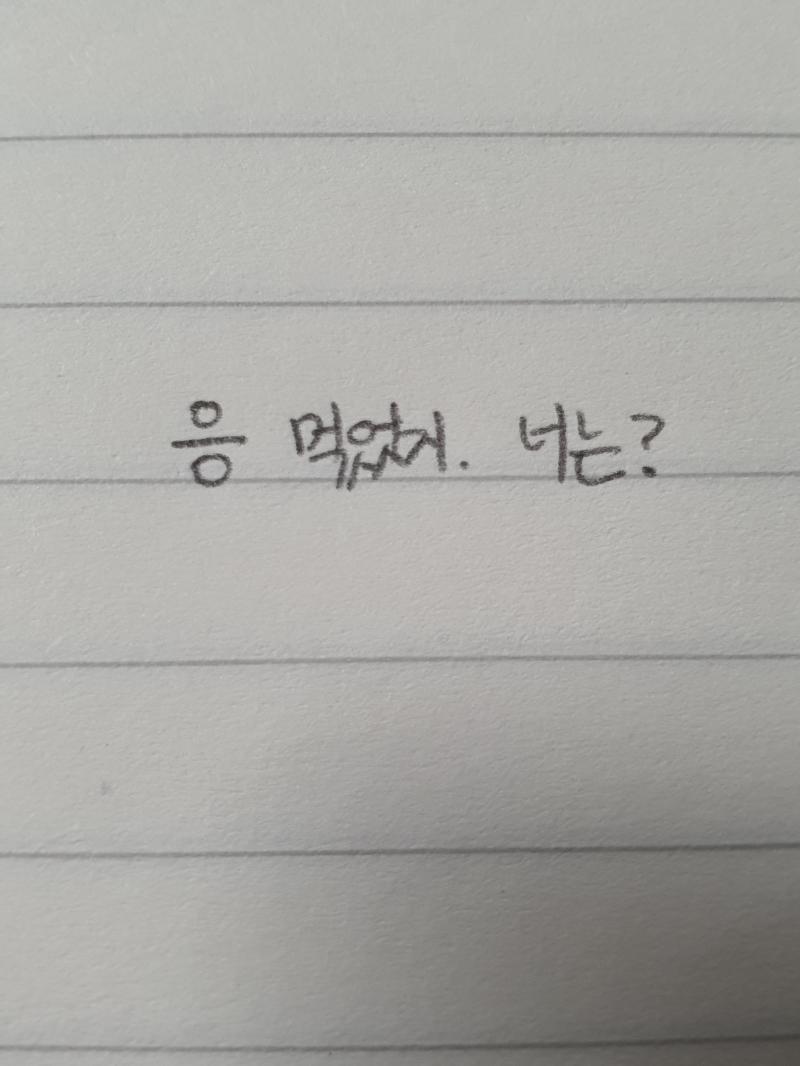 응 먹었지. 너는?